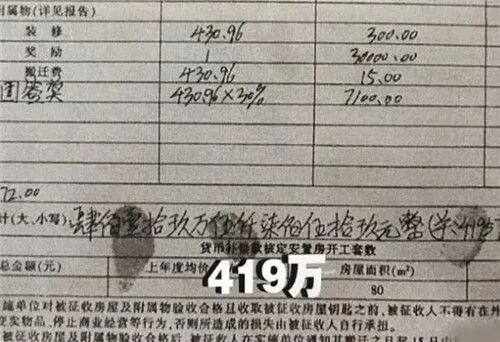 附属物(详见报告)
装修 430.96 300.00
奖励 1 30000.00
搬迁费 430.96 15.00
团签奖 430.96×30% 7100.00
72.00
计(大、小写): 肆佰壹拾玖万伍仟柒佰伍拾玖元整(¥:419
货币补偿款核定安置房开工套数
总金额(元) 上年度均价 房屋面积(m²)
419万
80
施单位对被征收房屋及附属物验收合格且收取被征收房屋钥匙之前,被征收人不得有在外
变卖物品、停止商业经营等行为,否则所造成的损失由被征收人自行承担。
被征收房屋及附属物验收合格后,被征收人在实施单位通知其搬迁之日起15日